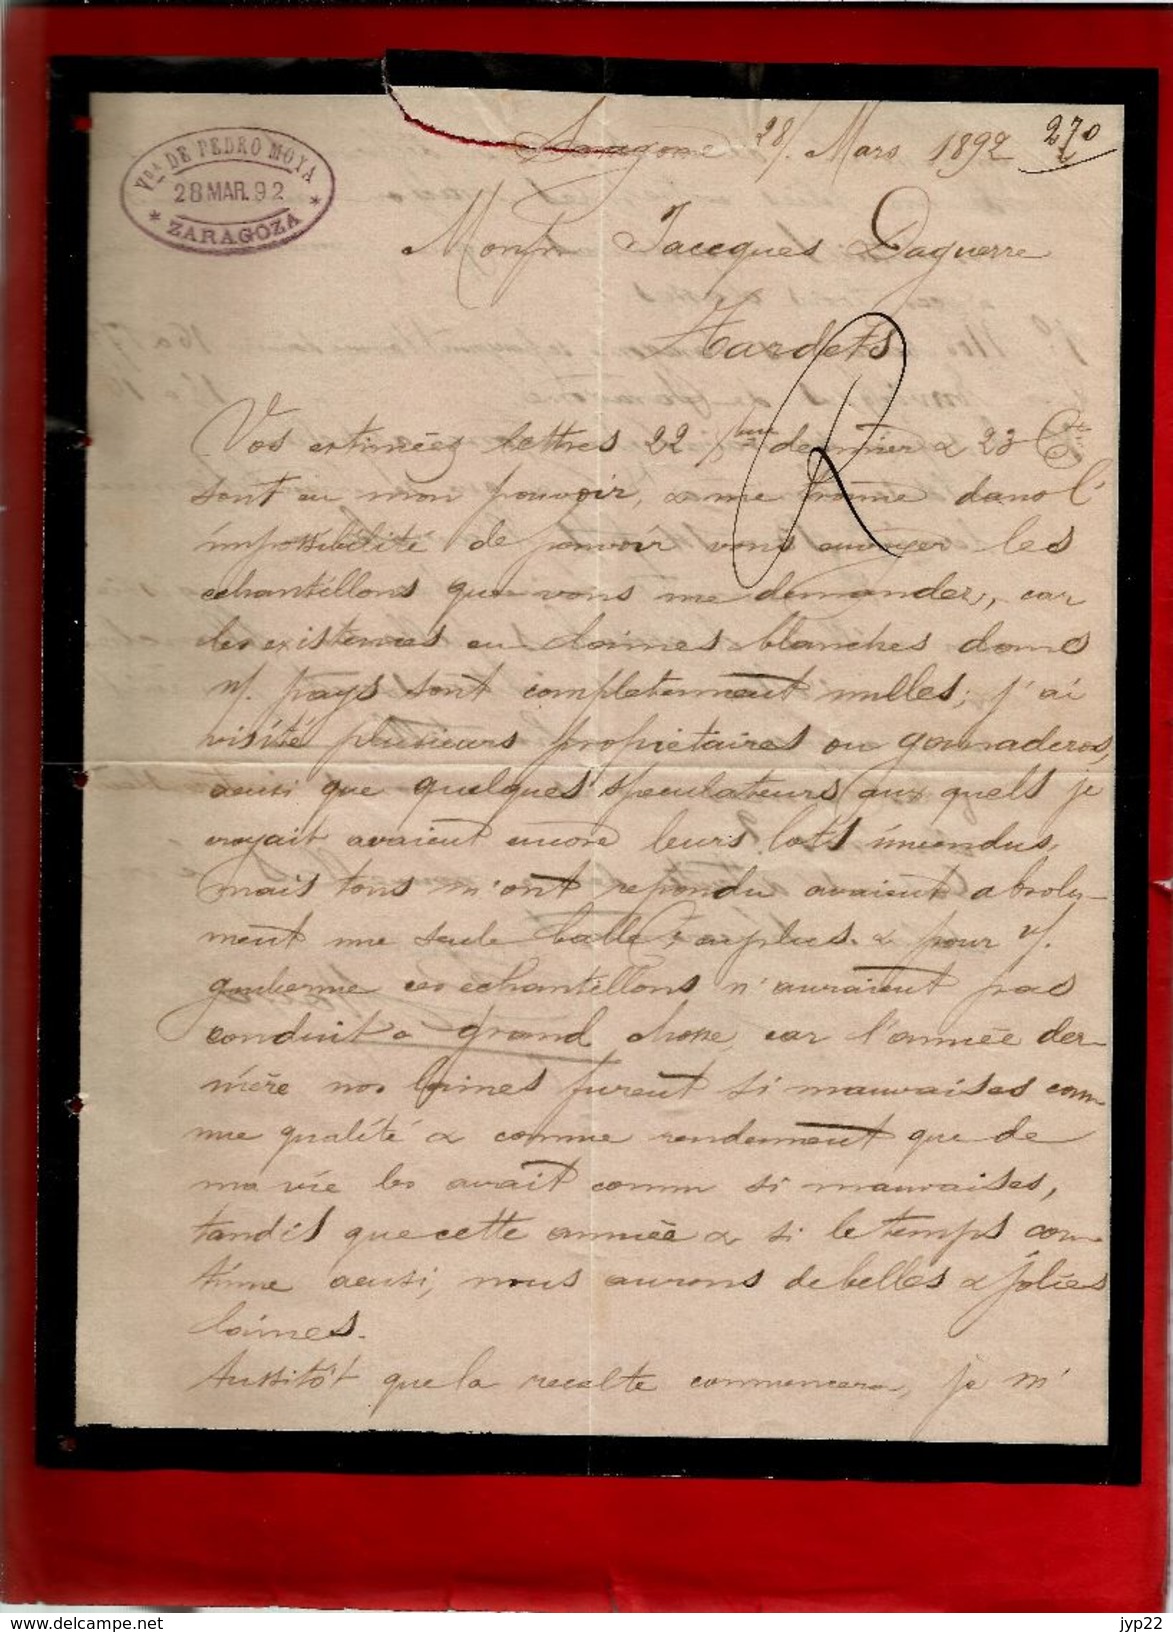 Vda DE PEDRO MOYA
28 MAR. 92
* ZARAGOZA *
Saragosse 28/. Mars 1892
270
Jaccques Daguerre
Tardets
Vos estimées lettres 22 dernier & 23
sont en mon pouvoir, & me trouve dans l'
impossibilité de pouvoir vous envoyer les
echantillons que vous me demandez, car
les existences en laines blanches dans
n/. pays sont completement nulles; j'ai
visité plusieurs propietaires ou gannaderos,
ainsi que quelques speculateurs aux quels je
croyait avaient encore leurs lots invendus,
mais tous m'ont repondu avaient absolu-
ment une seule balle & pour n/.
gouberne ces echantillons n'auraient pas
conduit a grand chose, car l'année der-
niére nos laines furent si mauvaises com-
me qualité & comme rendement que de
ma vie les avait connu si mauvaises,
tandis que cette année & si le temps con-
tinue ainsi, nous aurons de belles & jolies
laines.
Aussitôt que la recolte commencera, je m'
delcampe.net
jyp22